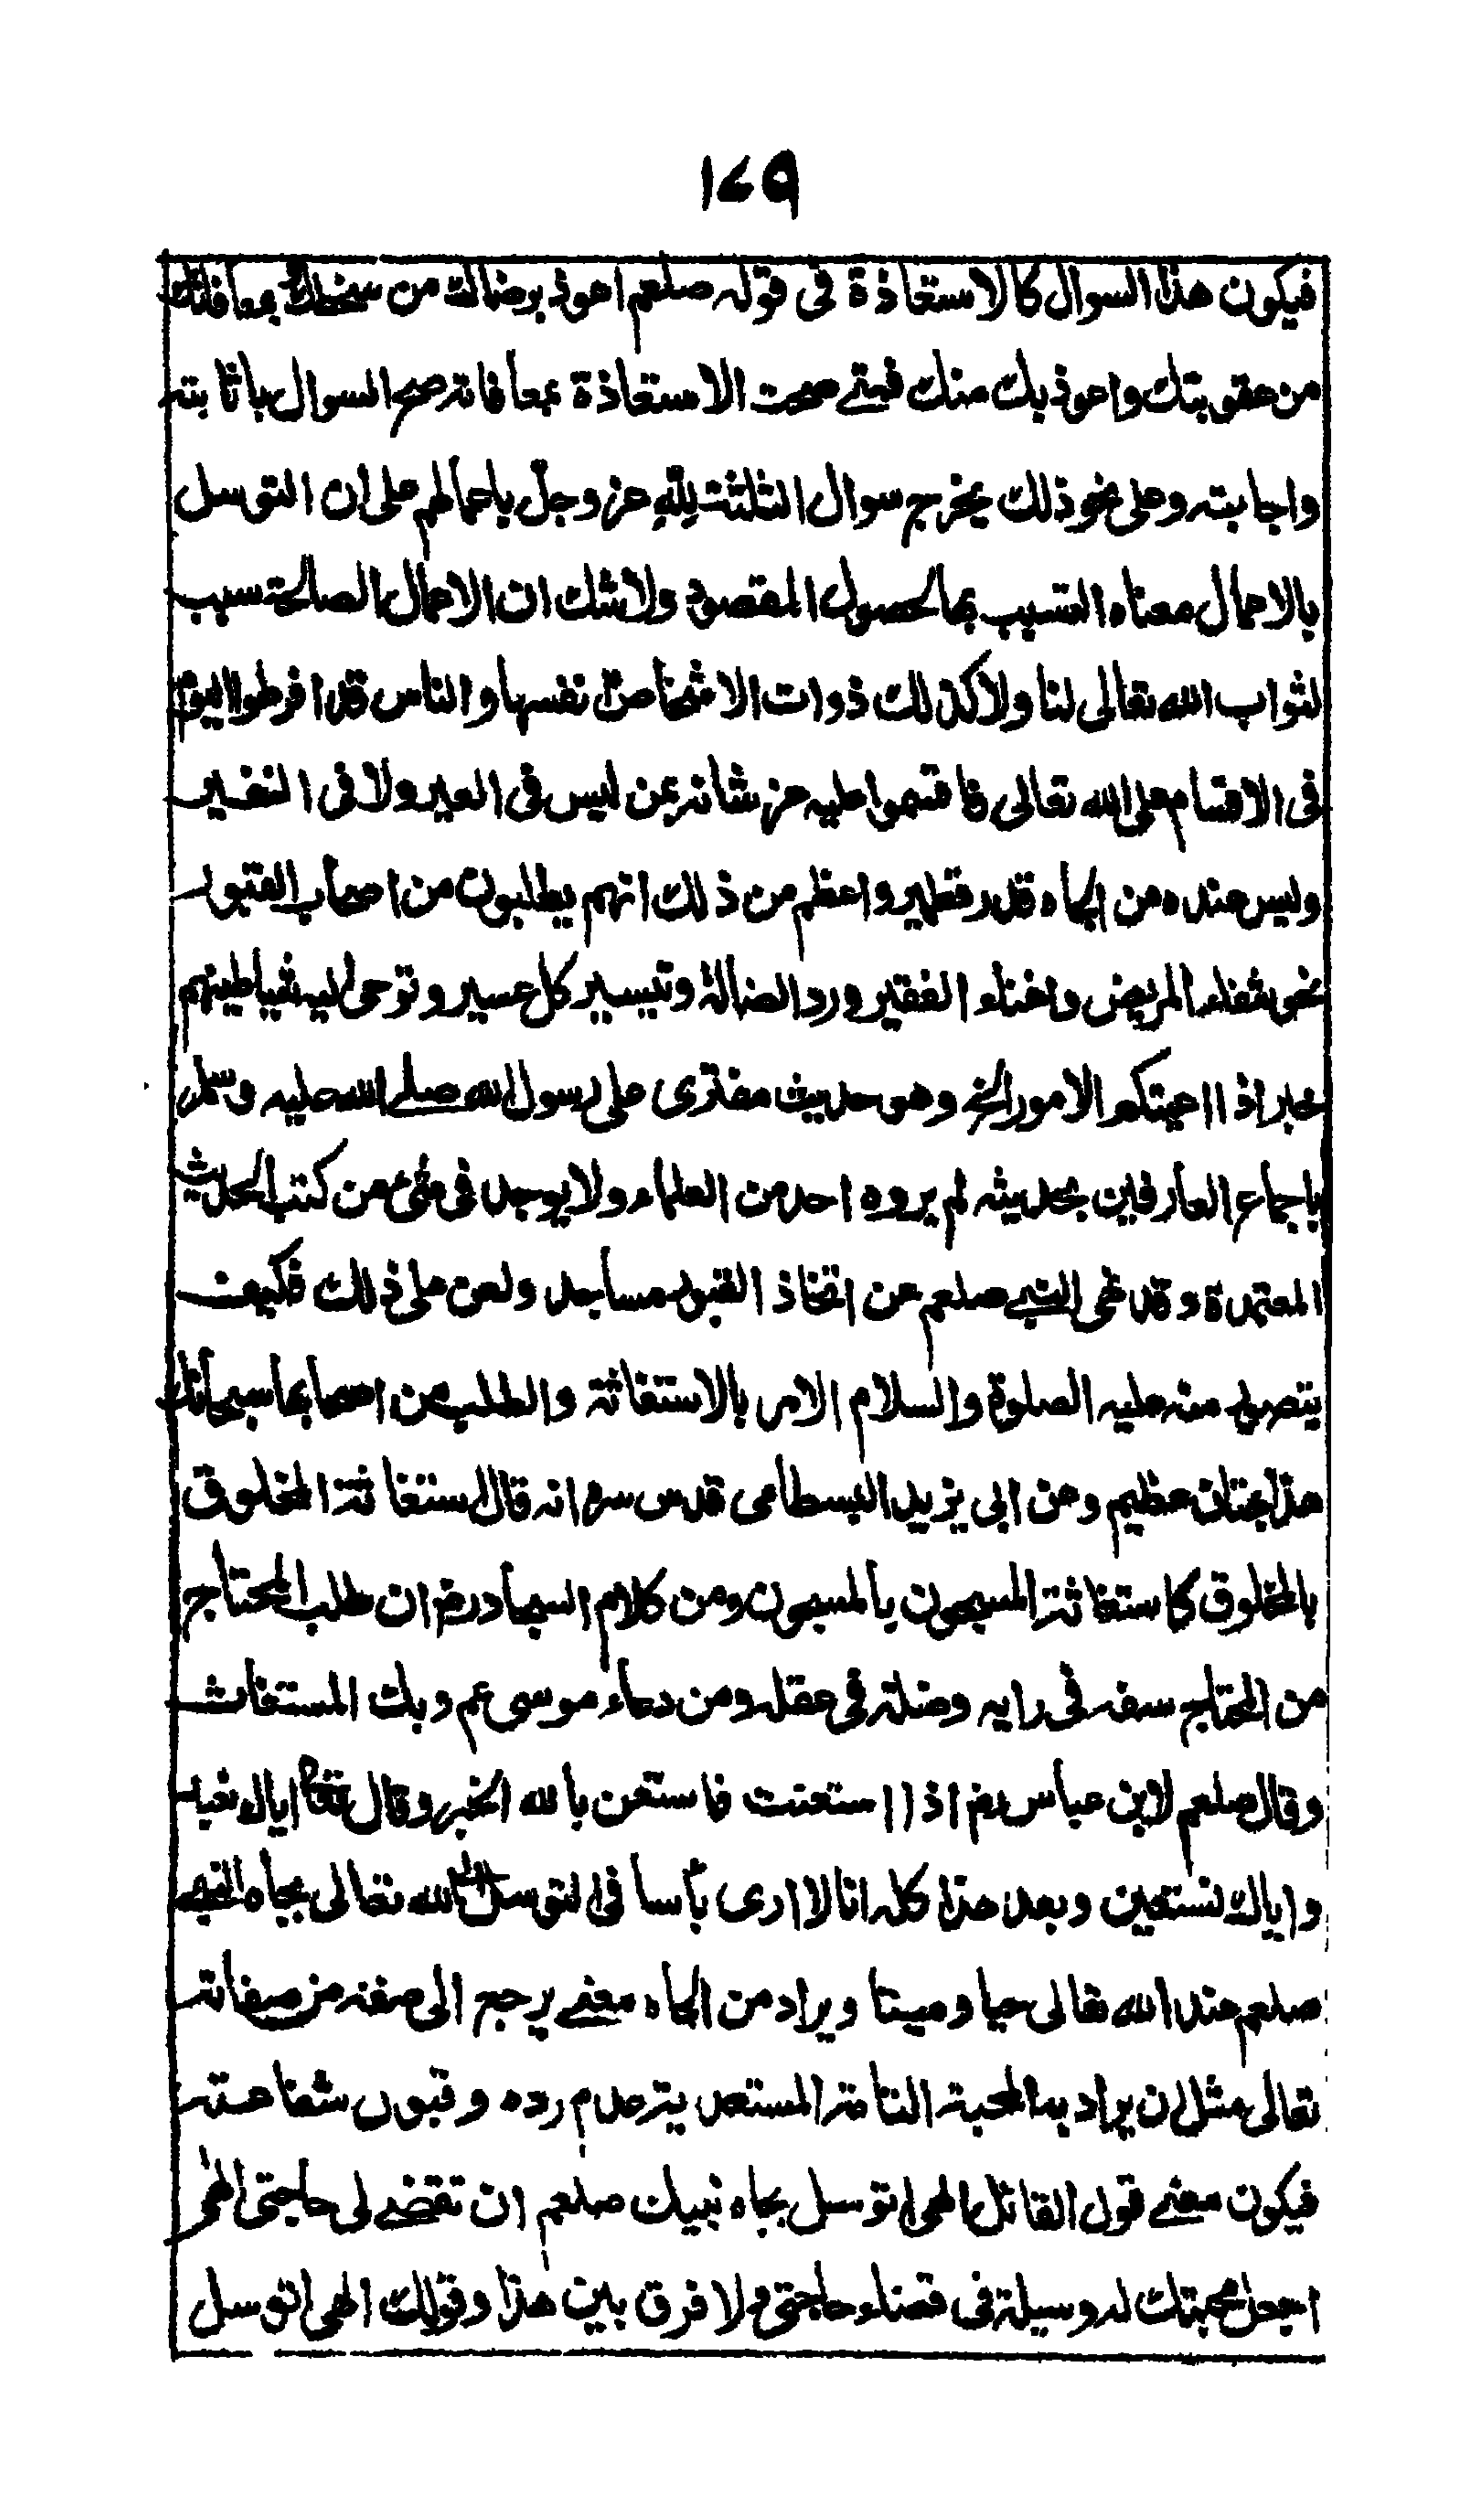 ١٤٩
فيكون هذا السوال كالاستعاذة فى قوله صلعم اعوذ برضاك من سخطك وبمعافاتك
من عقوبتك واعوذ بك منك فمتى صحت الاستعاذة بمعافاته صح السوال باثابته
واجابته وعلى نحو ذلك يخرج سوال الثلثة لله عز وجل باعمالهم على ان التوسل
بالاعمال معناه التسبب بها لحصول المقصود ولا شك ان الاعمال الصالحة سبب
لثواب الله تعالى لنا ولا كذلك ذوات الاشخاص نفسها والناس قد افرطوا اليوم
فى الاقسام على الله تعالى فاقسموا عليه عز شانه بمن ليس فى العير ولا فى النفير
وليس عنده من الجاه قدر قطمير واعظم من ذلك انهم يطلبون من اصحاب القبور
نحو شفاء المريض واغناء الفقير ورد الضالة وتيسير كل عسير وتوحى اليهم شياطينهم
خبر اذا اعيتكم الامور الخ وهو حديث مفترى على رسول الله صلى الله عليه وسلم
باجماع العارفين بحديثه لم يروه احد من العلماء ولا يوجد فى شئ من كتب الحديث
المعتمدة وقد نهى النبي صلعم عن اتخاذ القبور مساجد ولعن على ذلك فكيف
يتصور منه عليه الصلوة والسلام الامر بالاستغاثة والطلب من اصحابها سبحانك
هذا بهتان عظيم وعن ابى يزيد البسطامى قدس سره انه قال استغاثة المخلوق
بالمخلوق كاستغاثة المسجون بالمسجون ومن كلام السجاد رض ان طلب المحتاج
من المحتاج سفه فى رايه وضلة فى عقله ومن دعاء موسى عم وبك المستغاث
وقال صلعم لابن عباس رض اذا استعنت فاستعن بالله الخبر وقال تعالى اياك نعبد
واياك نستعين وبعد هذا كله انا لا ارى بأسا فى التوسل الى الله تعالى بجاه النبي
صلعم عند الله تعالى حيا وميتا ويراد من الجاه معنى يرجع الى صفة من صفاته
تعالى مثل ان يراد به المحبة التامة المستدعية عدم رده وقبول شفاعته
فيكون معنى قول القائل الهى اتوسل بجاه نبيك صلعم ان تقضى لى حاجتى الهى
اجعل محبتك له وسيلة فى قضاء حاجتى ولا فرق بين هذا وقولك الهى اتوسل